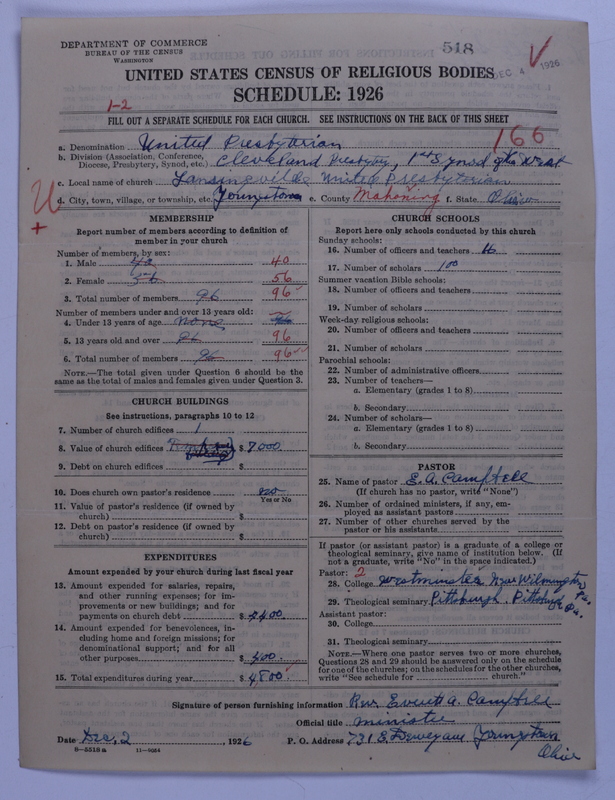 DEPARTMENT OF COMMERCE
BUREAU OF THE CENSUS
WASHINGTON
518
DEC 4 1926
UNITED STATES CENSUS OF RELIGIOUS BODIES
SCHEDULE: 1926
1-2
FILL OUT A SEPARATE SCHEDULE FOR EACH CHURCH. SEE INSTRUCTIONS ON THE BACK OF THIS SHEET
166
a. Denomination United Presbyterian
b. Division (Association, Conference, Diocese, Presbytery, Synod, etc.) Cleveland Presbytery, 1st Synod of the West
c. Local name of church Lansingville United Presbyterian
d. City, town, village, or township, etc. Youngstown e. County Mahoning f. State Ohio
U
+
MEMBERSHIP
Report number of members according to definition of member in your church
Number of members, by sex:
1. Male 40
2. Female 56 56
3. Total number of members 96 96
Number of members under and over 13 years old:
4. Under 13 years of age none
5. 13 years old and over 96 96
6. Total number of members 96 96
NOTE.—The total given under Question 6 should be the same as the total of males and females given under Question 3.
CHURCH BUILDINGS
See instructions, paragraphs 10 to 12
7. Number of church edifices 1
8. Value of church edifices $ 7000
9. Debt on church edifices $
10. Does church own pastor's residence no
Yes or No
11. Value of pastor's residence (if owned by church) $
12. Debt on pastor's residence (if owned by church) $
EXPENDITURES
Amount expended by your church during last fiscal year
13. Amount expended for salaries, repairs, and other running expenses; for improvements or new buildings; and for payments on church debt $
14. Amount expended for benevolences, including home and foreign missions; for denominational support; and for all other purposes $ 400
15. Total expenditures during year $
CHURCH SCHOOLS
Report here only schools conducted by this church
Sunday schools:
16. Number of officers and teachers
17. Number of scholars 100
Summer vacation Bible schools:
18. Number of officers and teachers
19. Number of scholars
Week-day religious schools:
20. Number of officers and teachers
21. Number of scholars
Parochial schools:
22. Number of administrative officers
23. Number of teachers—
a. Elementary (grades 1 to 8)
b. Secondary
24. Number of scholars—
a. Elementary (grades 1 to 8)
b. Secondary
PASTOR
25. Name of pastor E. A. Campbell
(If church has no pastor, write "None")
26. Number of ordained ministers, if any, employed as assistant pastors
27. Number of other churches served by the pastor or his assistants
If pastor (or assistant pastor) is a graduate of a college or theological seminary, give name of institution below. (If not a graduate, write "No" in the space indicated.)
Pastor: 2
28. College Westminster New Wilmington Pa.
29. Theological seminary Pittsburgh Pittsburgh Pa.
Assistant pastor:
30. College
31. Theological seminary
NOTE.—Where one pastor serves two or more churches, Questions 28 and 29 should be answered only on the schedule for one of the churches; on the schedules for the other churches, write "See schedule for church."
Signature of person furnishing information Rev. Everett A. Campbell
Official title minister
Date Dec. 2, 1926 P. O. Address 731 E. Dewey ave Youngstown Ohio
8-5518 a 11-9034